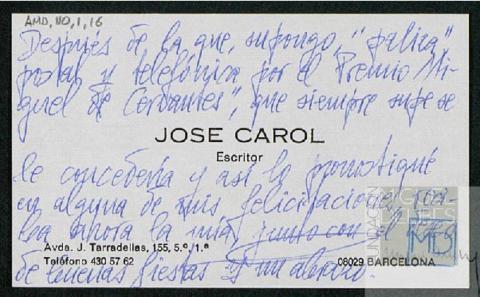 AMD, 110, 1, 16
Después de la que, supongo, "paliza"
postal y telefónica por el Premio Mi-
guel de Cervantes", que siempre supe se
JOSE CAROL
Escritor
le concedería y así lo pronostiqué
en alguna de mis felicitaciones, reci-
ba ahora la mía, junto con el
Avda. J. Tarradellas, 155, 5.º, 1.ª
Teléfono 430 57 62
08029 BARCELONA
de buenas fiestas y un abrazo.
FUNDACIÓN
MIGUEL
DELIBES
MD